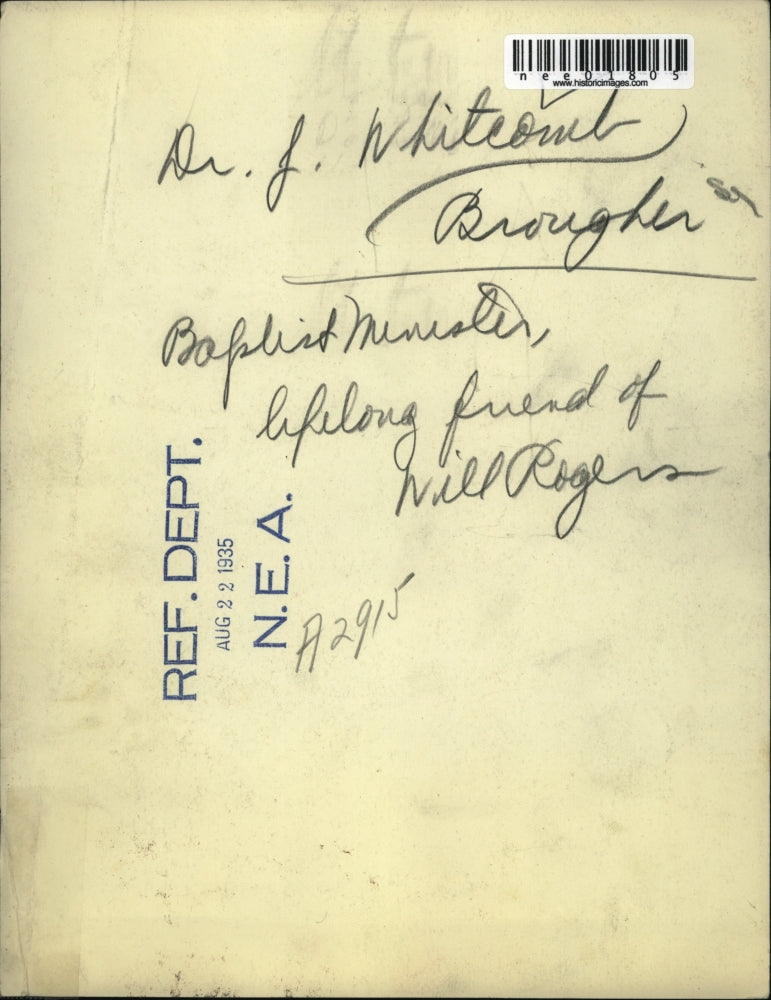 nee01805
www.historicimages.com
Dr. J. Whitcomb
Brougher
Baptist Minister,
lifelong friend of
Will Rogers
REF. DEPT.
AUG 22 1935
N.E.A.
A2915